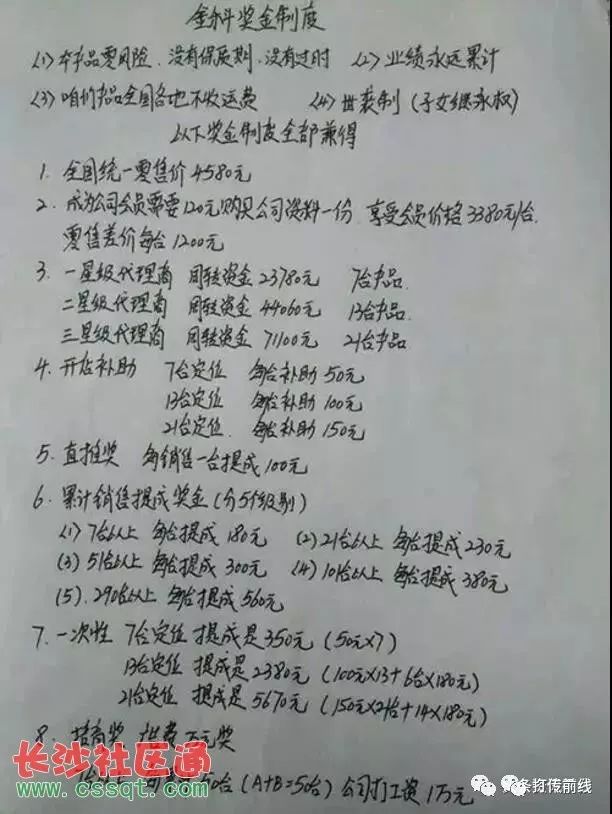 金科奖金制度
(1) 本产品零风险，没有保质期，没有过时 (2) 业绩永远累计
(3) 咱们产品全国各地不收运费 (4) 世袭制 (子女继承权)
以下奖金制度全部兼得
1. 全国统一零售价 4580元
2. 成为公司会员需要120元购买公司资料一份，享受会员价格3380元/台.
零售差价每台1200元
3. 一星级代理商 周转资金23780元 7台产品.
二星级代理商 周转资金44060元 13台产品.
三星级代理商 周转资金71100元 21台产品
4. 开店补助 7台定位 每台补助50元
13台定位 每台补助100元
21台定位. 每台补助150元
5. 直推奖 每销售一台提成100元
6. 累计销售提成奖金 (分5个级别)
(1) 7台以上 每台提成180元 (2) 21台以上 每台提成230元
(3) 51台以上 每台提成300元 (4) 101台以上 每台提成380元
(5). 290台以上 每台提成560元
7. 一次性 7台定位 提成是350元 (50元×7)
13台定位 提成是2380元 (100元×13+6台×180元)
21台定位 提成是5670元 (150元×21台+14×180元)
8. 招商奖 万元奖
50台 (A+B=50台) 公司打工资1万元
长沙社区通
www.cssqt.com
条狗传前线